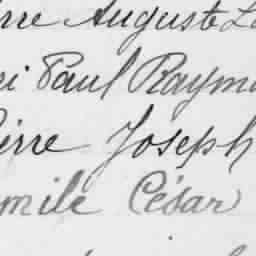 rre Auguste L
ri Paul Raym
ierre Joseph
mile César